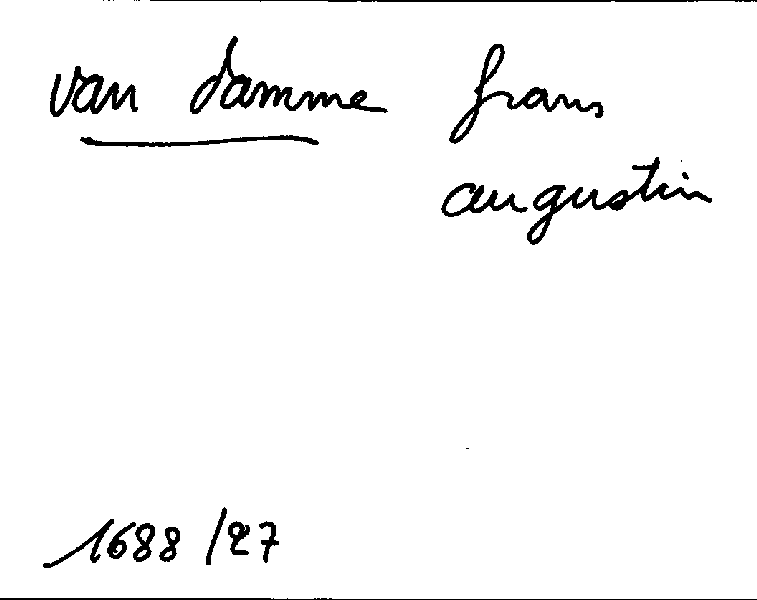 van damme frans
augustin
1688 /27